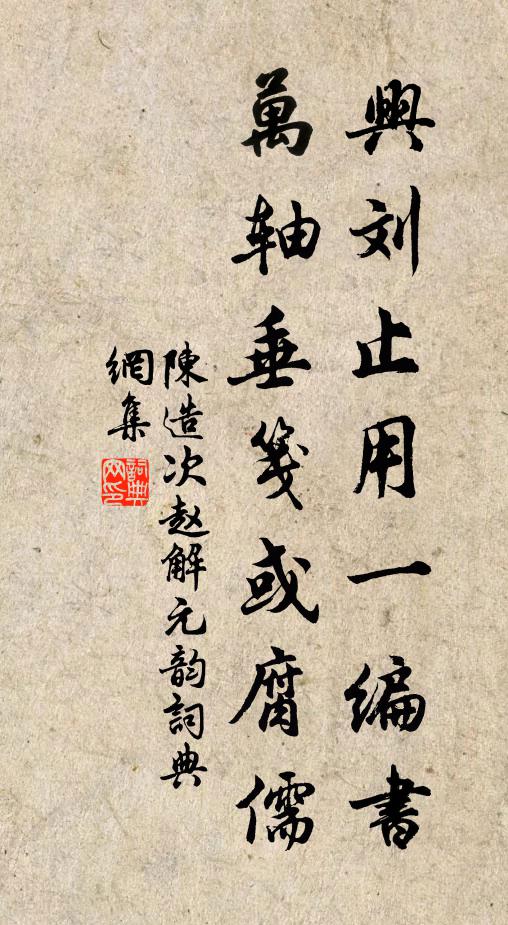 興刘止用一編書
萬轴垂笺或腐儒
陳造次赵解元韵詞典
網集
詞典
网印